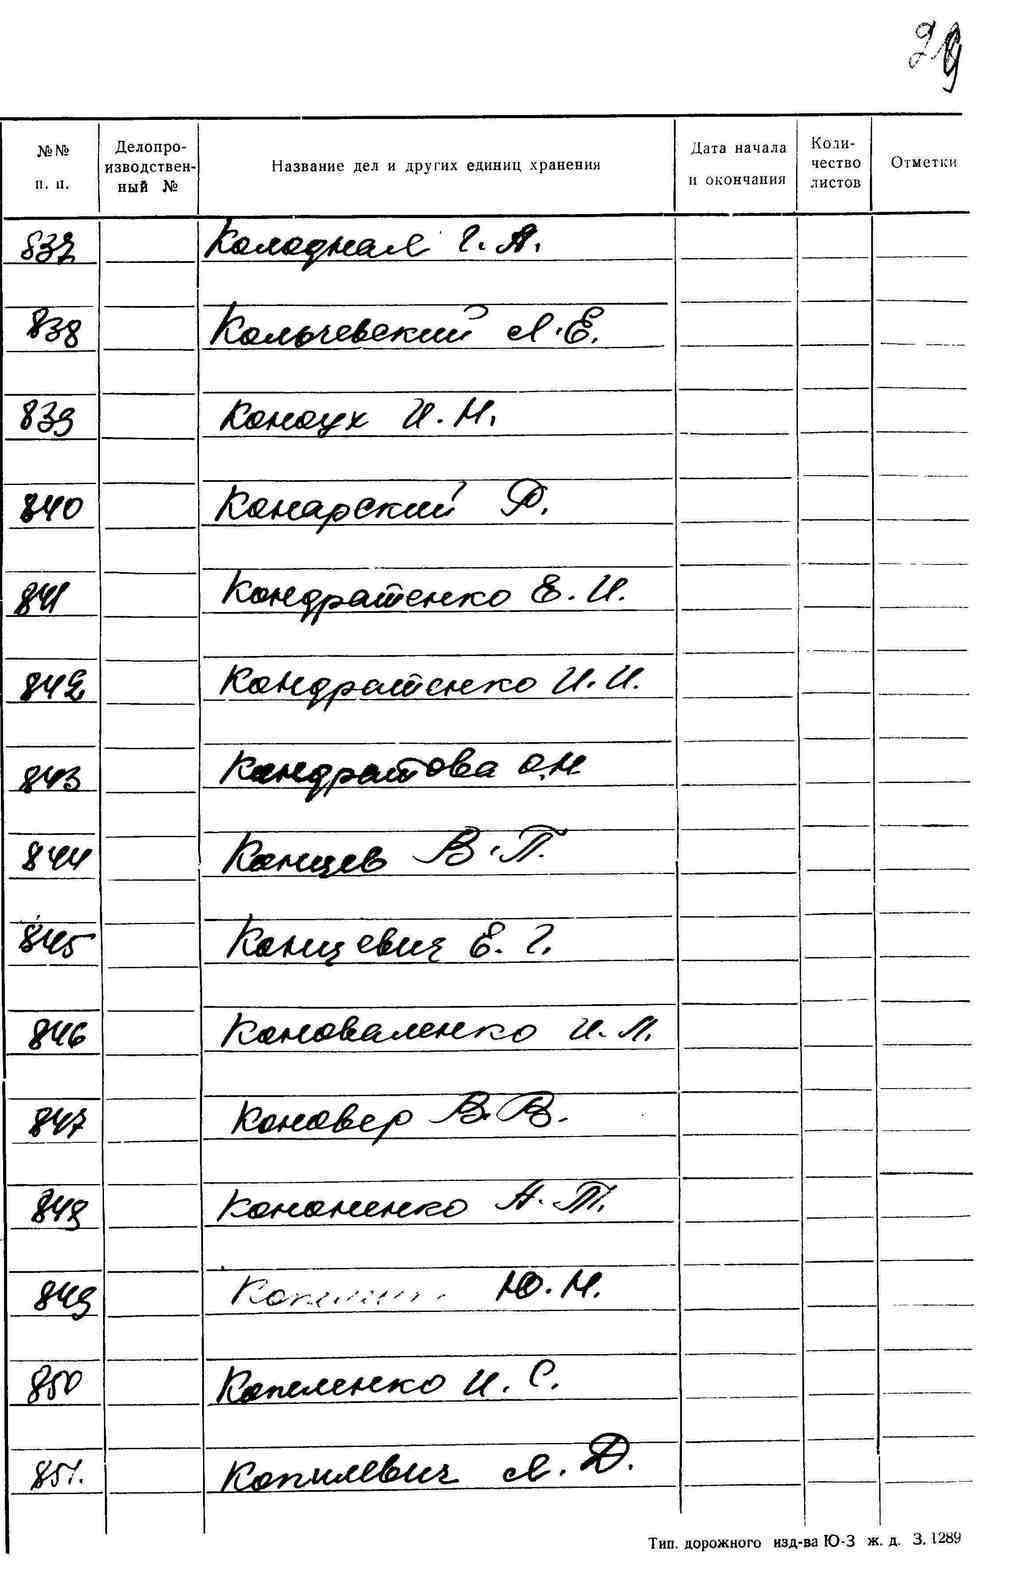 29
№№ п. п. Делопроизводственный № Название дел и других единиц хранения Дата начала и окончания Количество листов Отметки
837 Колодная Г. А.
838 Кольчевский Л. Е.
839 Коноух И. Н.
840 Конарский Ф.
841 Кондратенко Е. И.
842 Кондратенко И. И.
843 Кондратова О. Н.
844 Концев В. П.
845 Концевич Е. Г.
846 Коноваленко И. Л.
847 Коновер В. В.
848 Кононенко А. Т.
849 Ю. Н.
850 Копеленко И. С.
851. Копилевич Л. Д.
Тип. дорожного изд-ва Ю-З ж. д. З. 1289